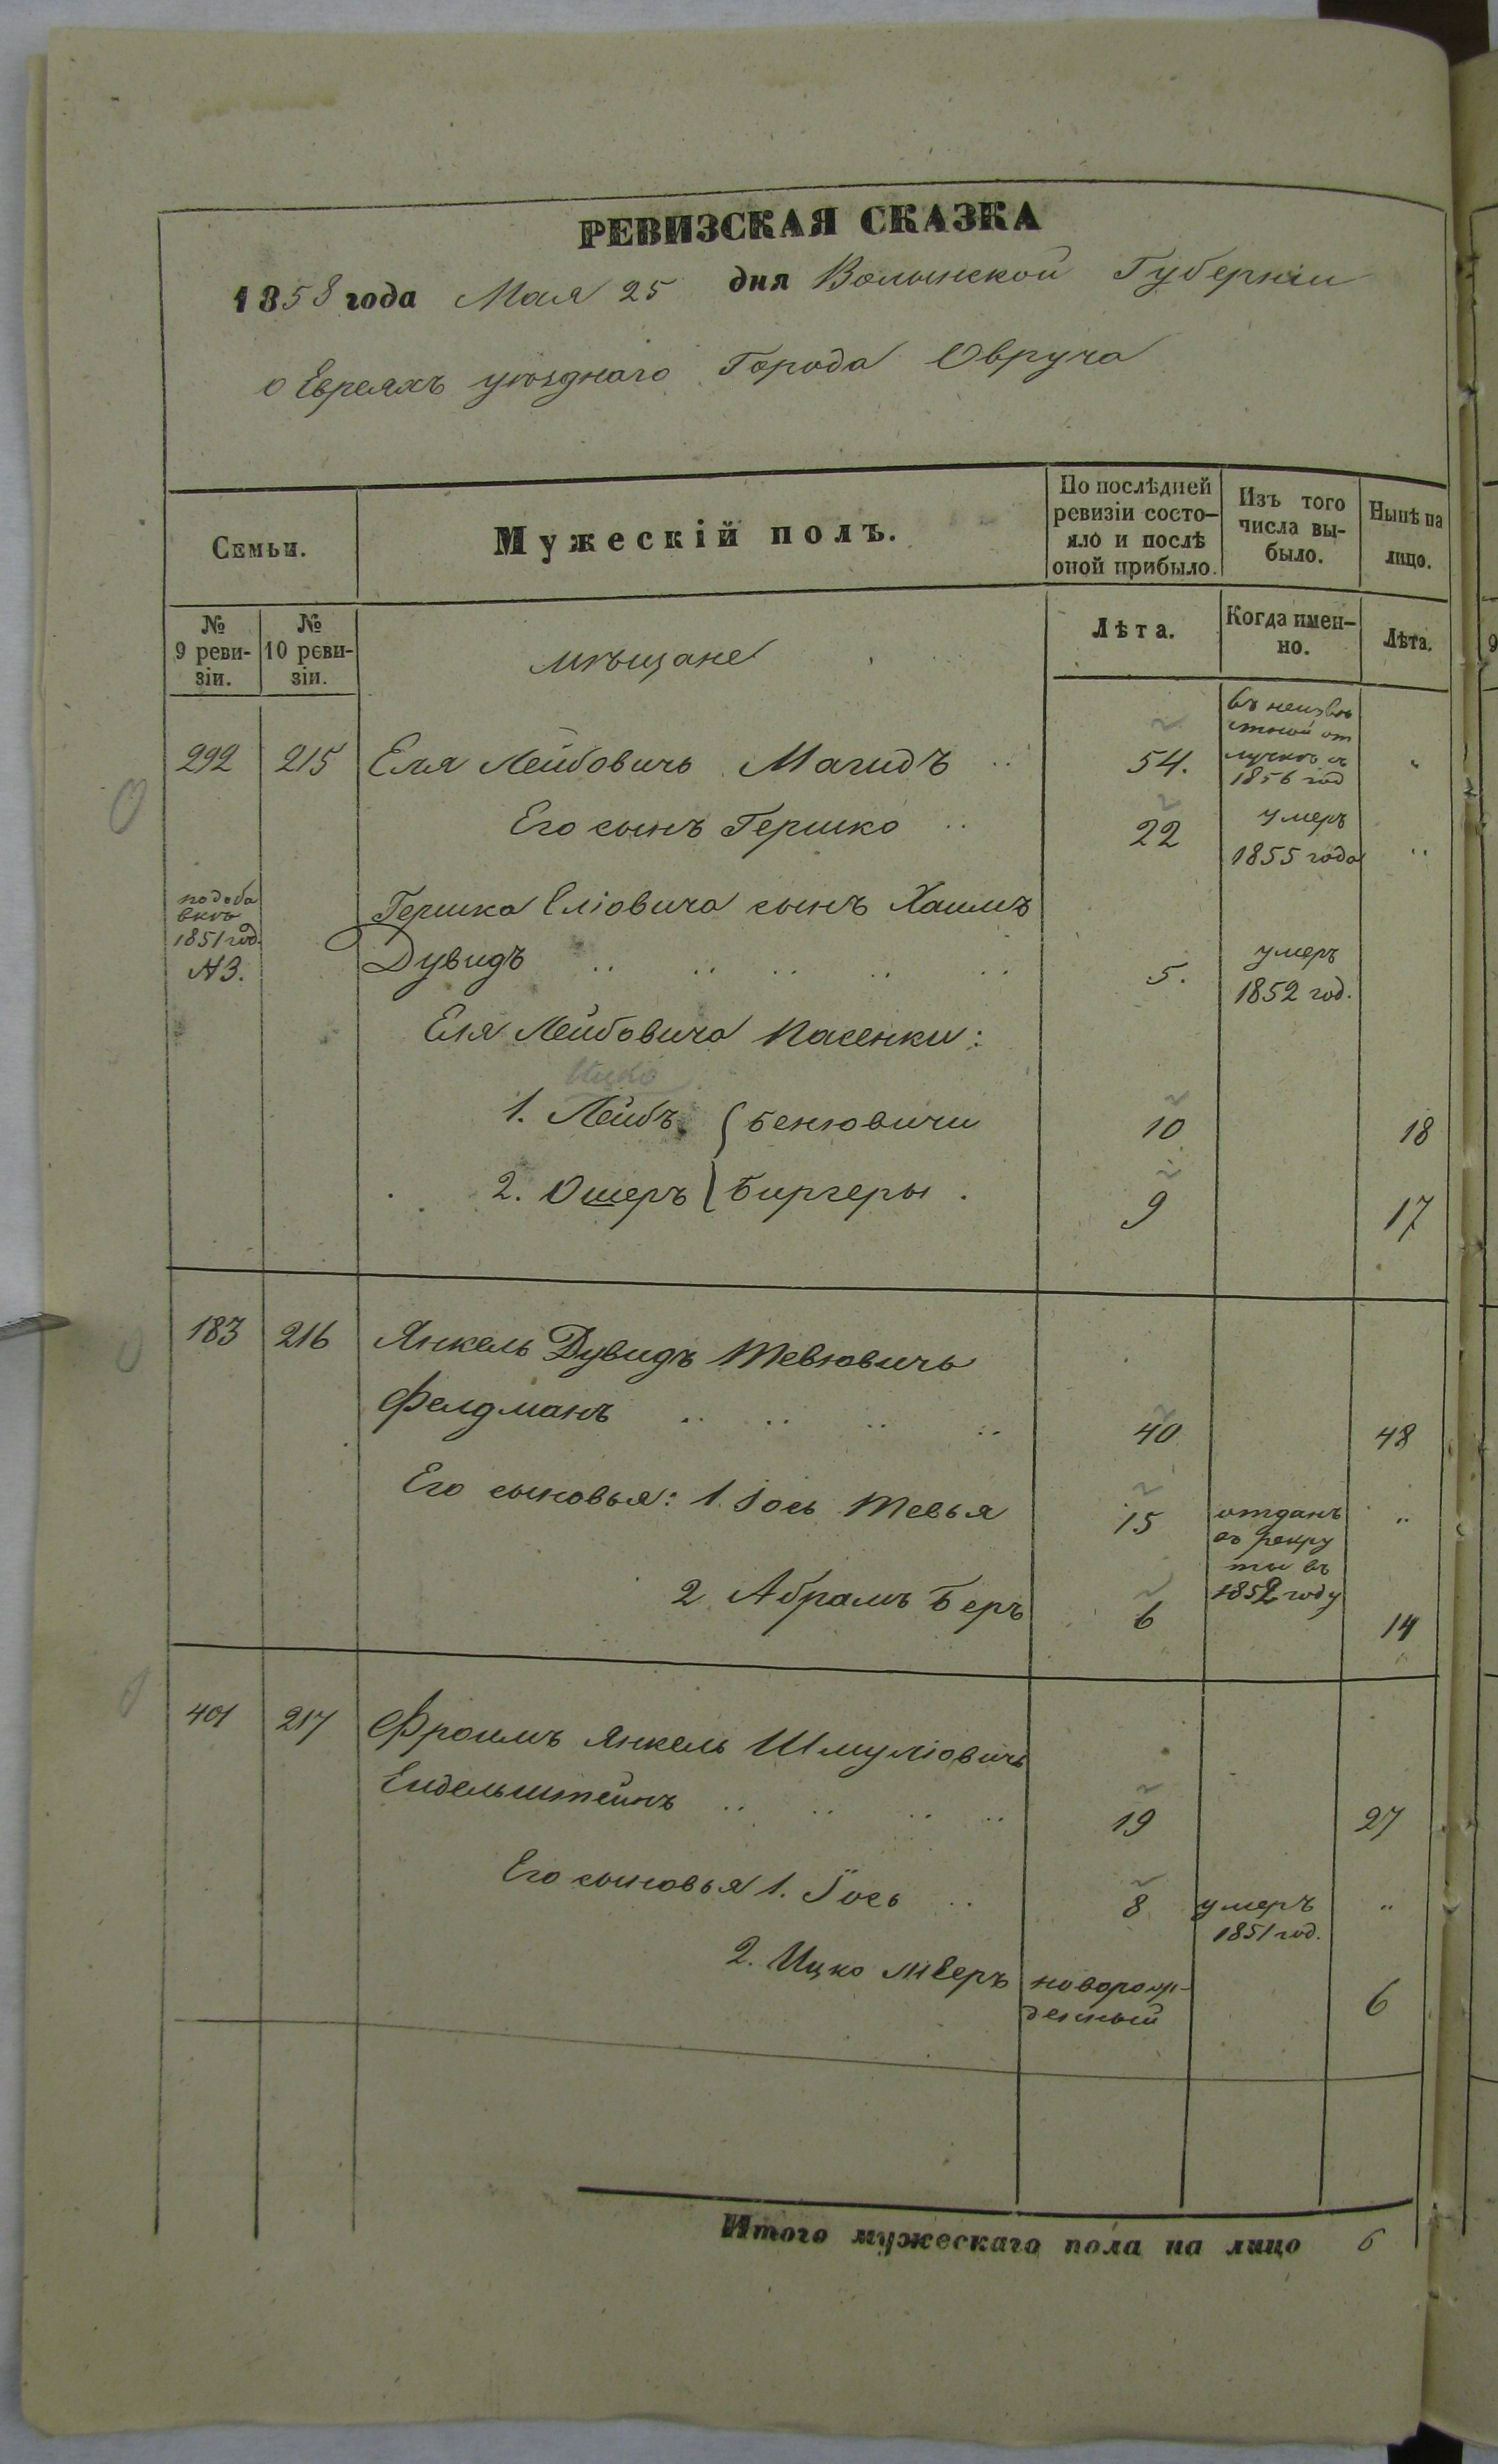 РЕВИЗСКАЯ СКАЗКА
1858 года Мая 25 дня Волынской Губерніи
о Евреяхъ уѣзднаго Города Овруча
Семьи.
Мужескій полъ.
По послѣдней ревизіи состо-
яло и послѣ
оной прибыло.
Изъ того
числа вы-
было.
Нынѣ на
лицо.
№
9 реви-
зіи.
№
10 реви-
зіи.
мѣщане
Лѣта.
Когда имен-
но.
Лѣта.
292 215 Еля Лейбовичь Магидъ .. 54. въ неизвѣ
стной от
лучкѣ съ
1856 год "
Его сынъ Гершко .. 22 умеръ
1855 года "
по доба
вкѣ
1851 год.
№3.
Гершка Еліовича сынъ Хаимъ
Дувидъ .. .. .. .. .. 5. умеръ
1852 год.
Еля Лейбовича пасенки:
Ицко
1. Лейбъ { Бенювичи 10 18
2. Ошеръ Биргеры . 9 17
183 216 Янкель Дувидъ Тевювичь
Фелдманъ .. .. .. .. 40 48
Его сыновья: 1. Іось Тевья 15 отданъ
въ рекру
ты въ
1852 году "
2 Абрамъ Беръ 6 14
401 217 Фроимъ Янкель Шмуліовичь
Ейдельштейнъ .. .. .. .. 19 27
Его сыновья 1. Іось .. 8 умеръ
1851 год. "
2. Ицко Мееръ новорож-
денный 6
Итого мужескаго пола на лицо 6